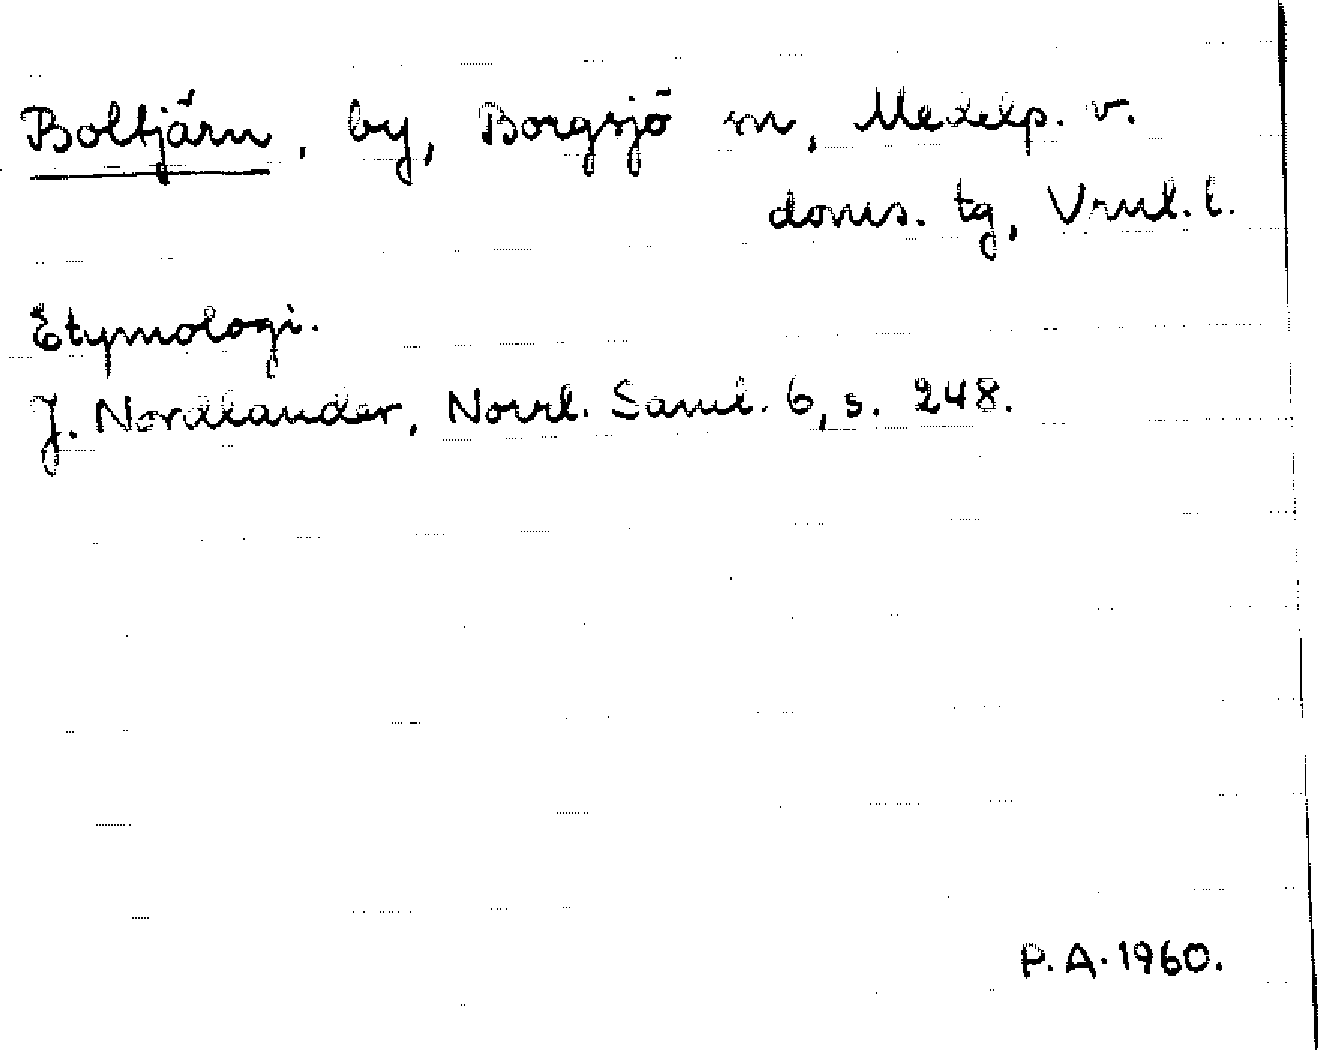 Boltjärn, by, Borgsjö sn, Medelp. v.
doms. tg, Vrnl. l.
Etymologi.
J. Nordlander, Norrl. Saml. 6, s. 248.
P. A. 1960.